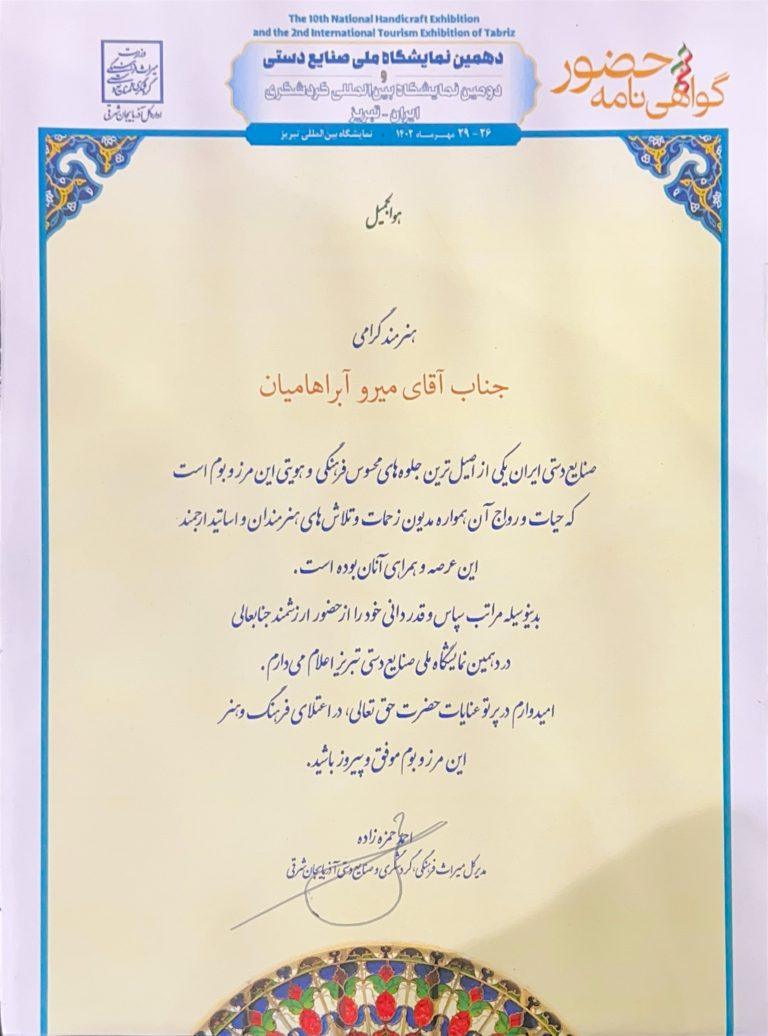 The 10th National Handicraft Exhibition
and the 2nd International Tourism Exhibition of Tabriz
دهمین نمایشگاه ملی صنایع دستی
و
دومین نمایشگاه بین‌المللی گردشگری
ایران - تبریز
۲۶ - ۲۹ مهرماه ۱۴۰۲ • نمایشگاه بین‌المللی تبریز
گواهی‌نامه حضور
وزارت
میراث فرهنگی
گردشگری و صنایع دستی
اداره کل آذربایجان شرقی
هوالجمیل
هنرمند گرامی
جناب آقای میرو آبراهامیان
صنایع دستی ایران یکی از اصیل ترین جلوه های محسوس فرهنگی و هویتی این مرز و بوم است
که حیات و رواج آن همواره مدیون زحمات و تلاش های هنرمندان و اساتید ارجمند
این عرصه و همراهی آنان بوده است.
بدینوسیله مراتب سپاس و قدردانی خود را از حضور ارزشمند جنابعالی
در دهمین نمایشگاه ملی صنایع دستی تبریز اعلام می‌دارم.
امیدوارم در پرتو عنایات حضرت حق تعالی، در اعتلای فرهنگ و هنر
این مرز و بوم موفق و پیروز باشید.
احمد حمزه زاده
مدیرکل میراث فرهنگی، گردشگری و صنایع دستی آذربایجان شرقی